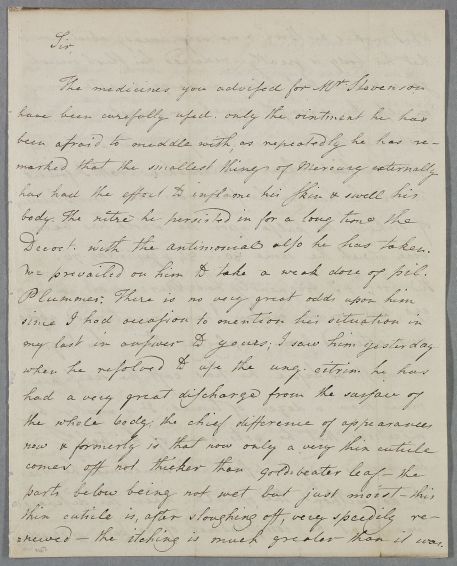 Sir
The medicines you advised for Mr. Stevenson
have been carefully used. only the ointment he has
been afraid to meddle with, as repeatedly he has re-
marked that the smallest thing of Mercury externally
has had the effect to inflame his skin & swell his
body. The nitre he persisted in for a long time the
Decoct. with the antimonial also he has taken.
we prevailed on him to take a weak dose of pil.
Plummer; There is no very great odds upon him
since I had occasion to mention his situation in
my last in answer to yours; I saw him yesterday
when he resolved to use the ung. citrin. he has
had a very great discharge from the surface of
the whole body; the chief difference of appearances
now & formerly is that now only a very thin cuticle
comes off not thicker than goldbeater leaf - the
parts below being not wet but just moist - this
thin cuticle is, after sloughing off, very speedily re-
=newed - the itching is much greater than it was.